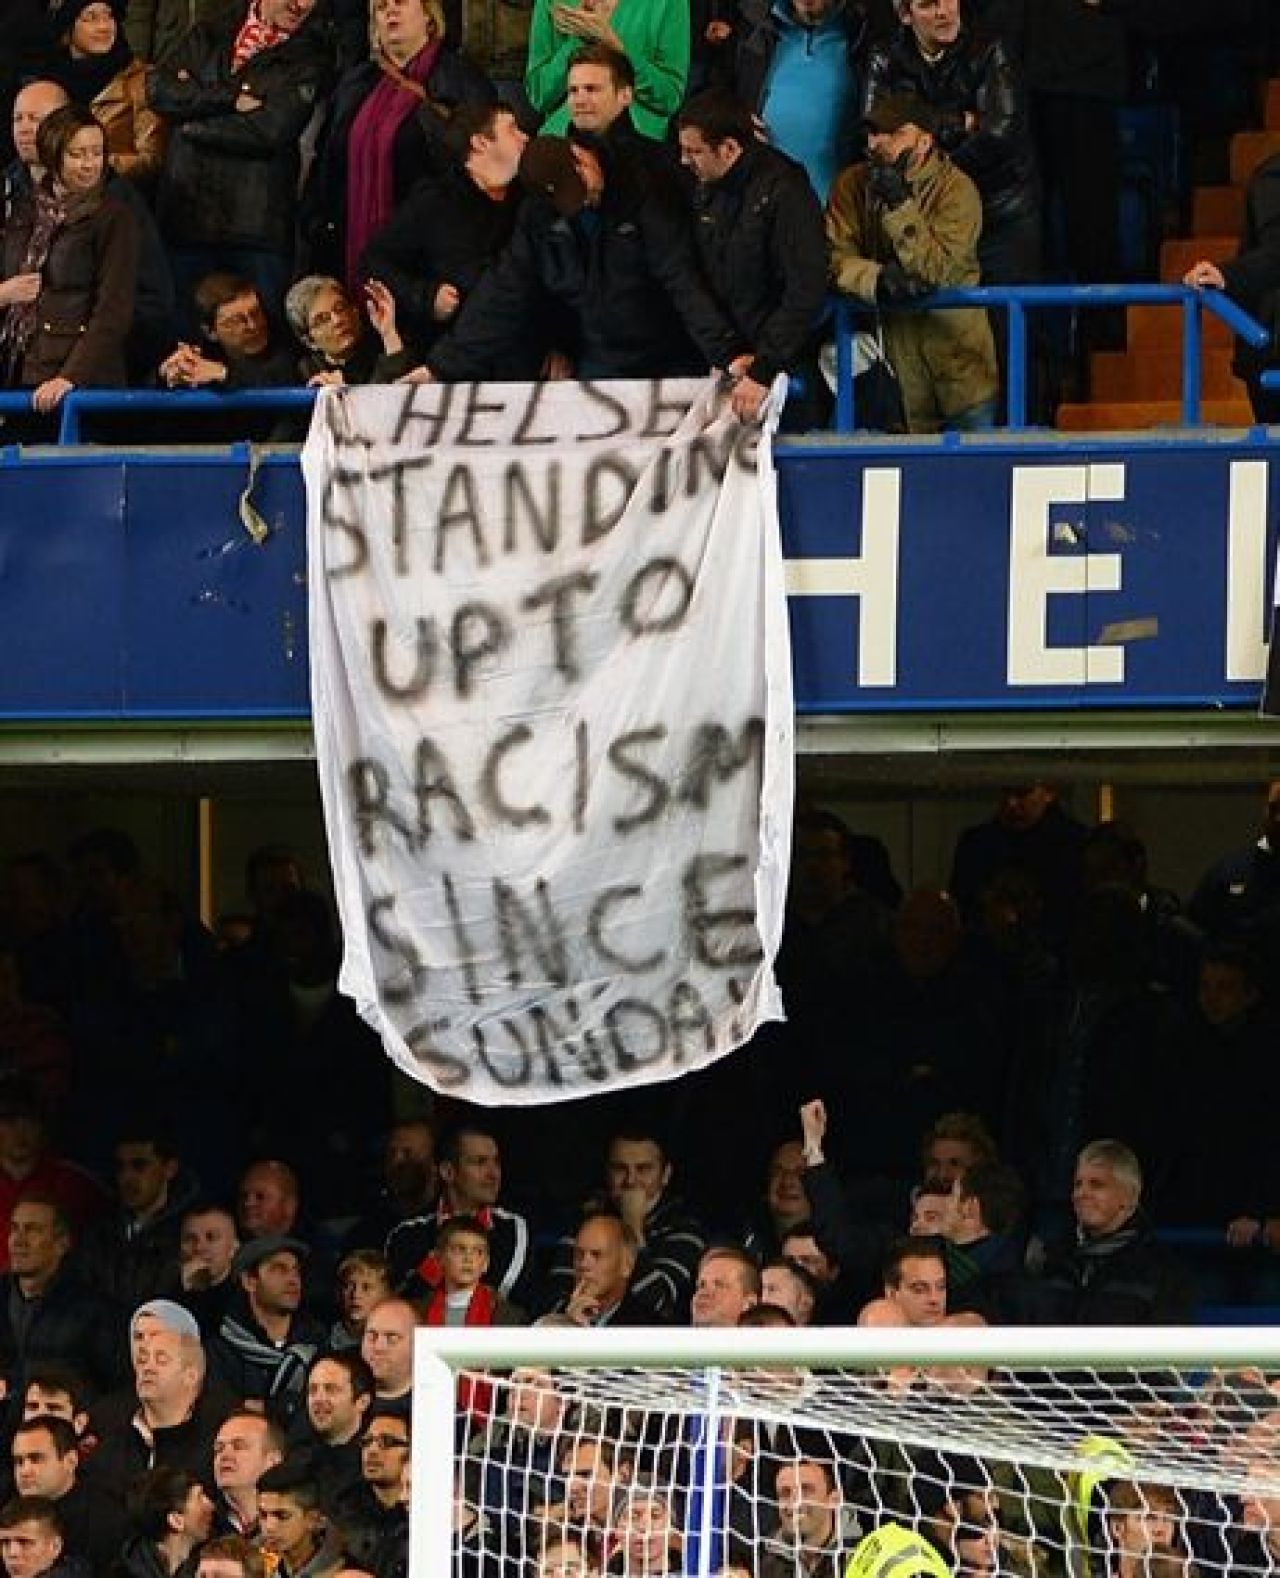 CHELSEA
STANDING
UP TO
RACISM
SINCE
SUNDAY
HEL